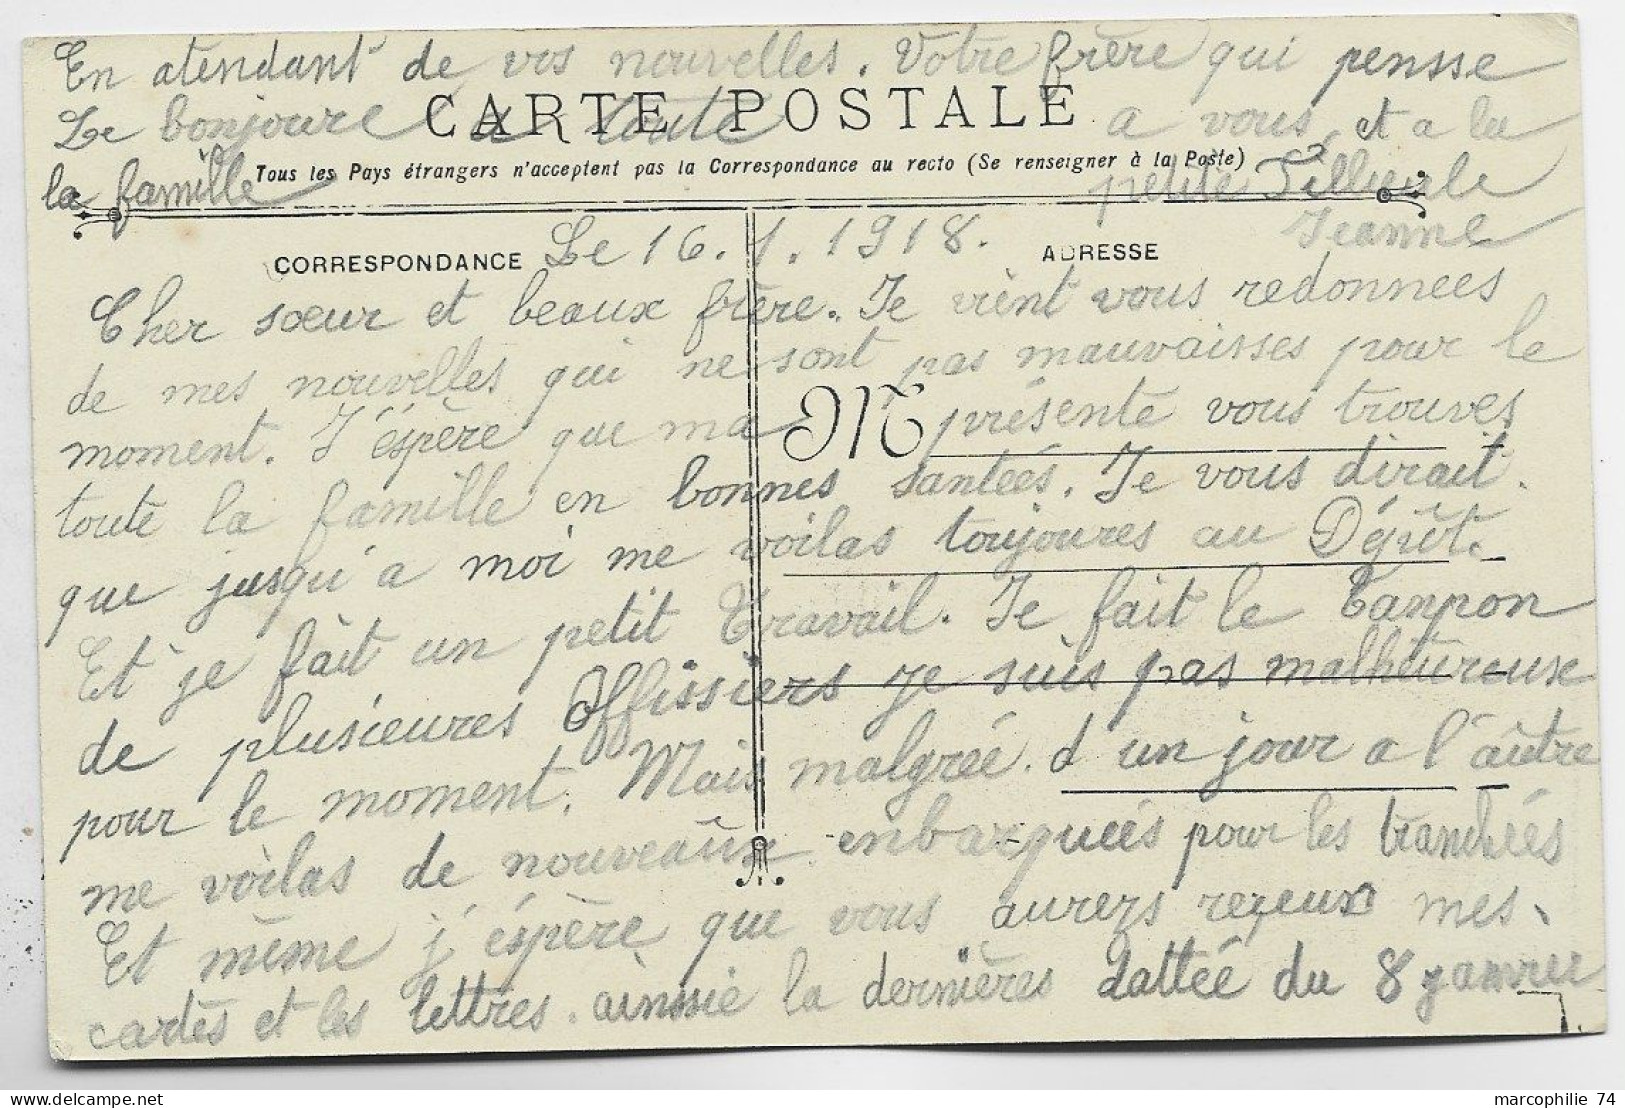 En atendant de vos nouvelles. Votre frère qui pensse
Le bonjoure a toute a vous, et a la
la famille petite Fillieule
Jeanne
CARTE POSTALE
Tous les Pays étrangers n'acceptent pas la Correspondance au recto (Se renseigner à la Poste)
CORRESPONDANCE Le 16.1.1918. ADRESSE
Cher sœur et beaux frère. Je vient vous redonnees
de mes nouvelles qui ne sont pas mauvaisses pour le
moment. J'éspère que ma M présente vous trouves
toute la famille en bonnes santées. Je vous dirait.
que jusqu'a moi me voilas toujoures au Dépôt.
Et je fait un petit travail. Je fait le Tanpon
de plusieures Offissiers je suis pas malheureuse
pour le moment. Mais malgrée. d un jour a l'autre
me voilas de nouveaux enbarquées pour les tranchées
Et même j'éspère que vous aurers rezeux mes.
cartes et les lettres. ainssie la dernières dattée du 8 janvier
marcophilie 74